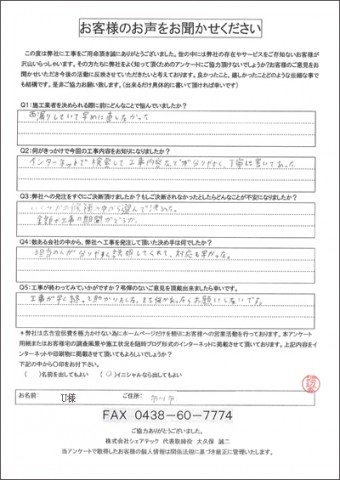 お客様のお声をお聞かせください
この度は弊社に工事をご用命頂き誠にありがとうございました。世の中には弊社の存在やサービスをご存知ないお客様が
沢山いらっしゃいます。その方たちに弊社をよく知って頂くためのアンケートにご協力頂けないでしょうか?お客様のご意見をお
聞かせいただき今後の活動に反映させていただきたいと考えております。良かったこと、嬉しかったことどのような些細な事で
も結構です。是非ご協力お願い致します。(出来るだけ具体的に書いて頂ければ幸いです)
Q1:施工業者を決められる際に前にどんなことで悩んでいましたか?
雨漏りしていて早めに直したかった
Q2:何がきっかけで今回の工事内容をお知りになりましたか?
インターネットで検索して工事内容などが分りやすく、丁寧に書いてあった
Q3:弊社への発注をすぐにご決断頂けましたか?もしご決断されなかったとしたらどんなことが不安になりましたか?
いくつかの候補の中から選んで決めた。
金額が工事の期間がどうか。
Q4:数ある会社の中から、弊社へ工事を発注して頂いた決め手は何でしたか?
担当の人が分りやすく説明してくれて、対応も早かった。
Q5:工事が終わってみていかがですか?弊摸のないご意見を頂戴出来ましたら幸いです。
工事が早く終って助かりました。また何かあったらお願いしたいです。
*弊社は広告宣伝費を極力かけない為にホームページだけを頼りにお客様への営業活動を行っております。本アンケート
用紙またはお客様宅の調査風景や施工状況を随時ブログ形式のインターネットに掲載させて頂いております。上記内容をイ
ンターネットや印刷物に掲載させて頂いてもよろしいでしょうか?
下記の中から○印をお付け下さい。
( )名前を出してもよい (○)イニシャルなら出してもよい
お名前: U様 ご住所: 市川市
FAX 0438-60-7774
ご協力ありがとうございました。
株式会社シェアテック 代表取締役 大久保 誠二
当アンケートで取得したお客様の個人情報は関係法規に基づき厳正に管理いたします。